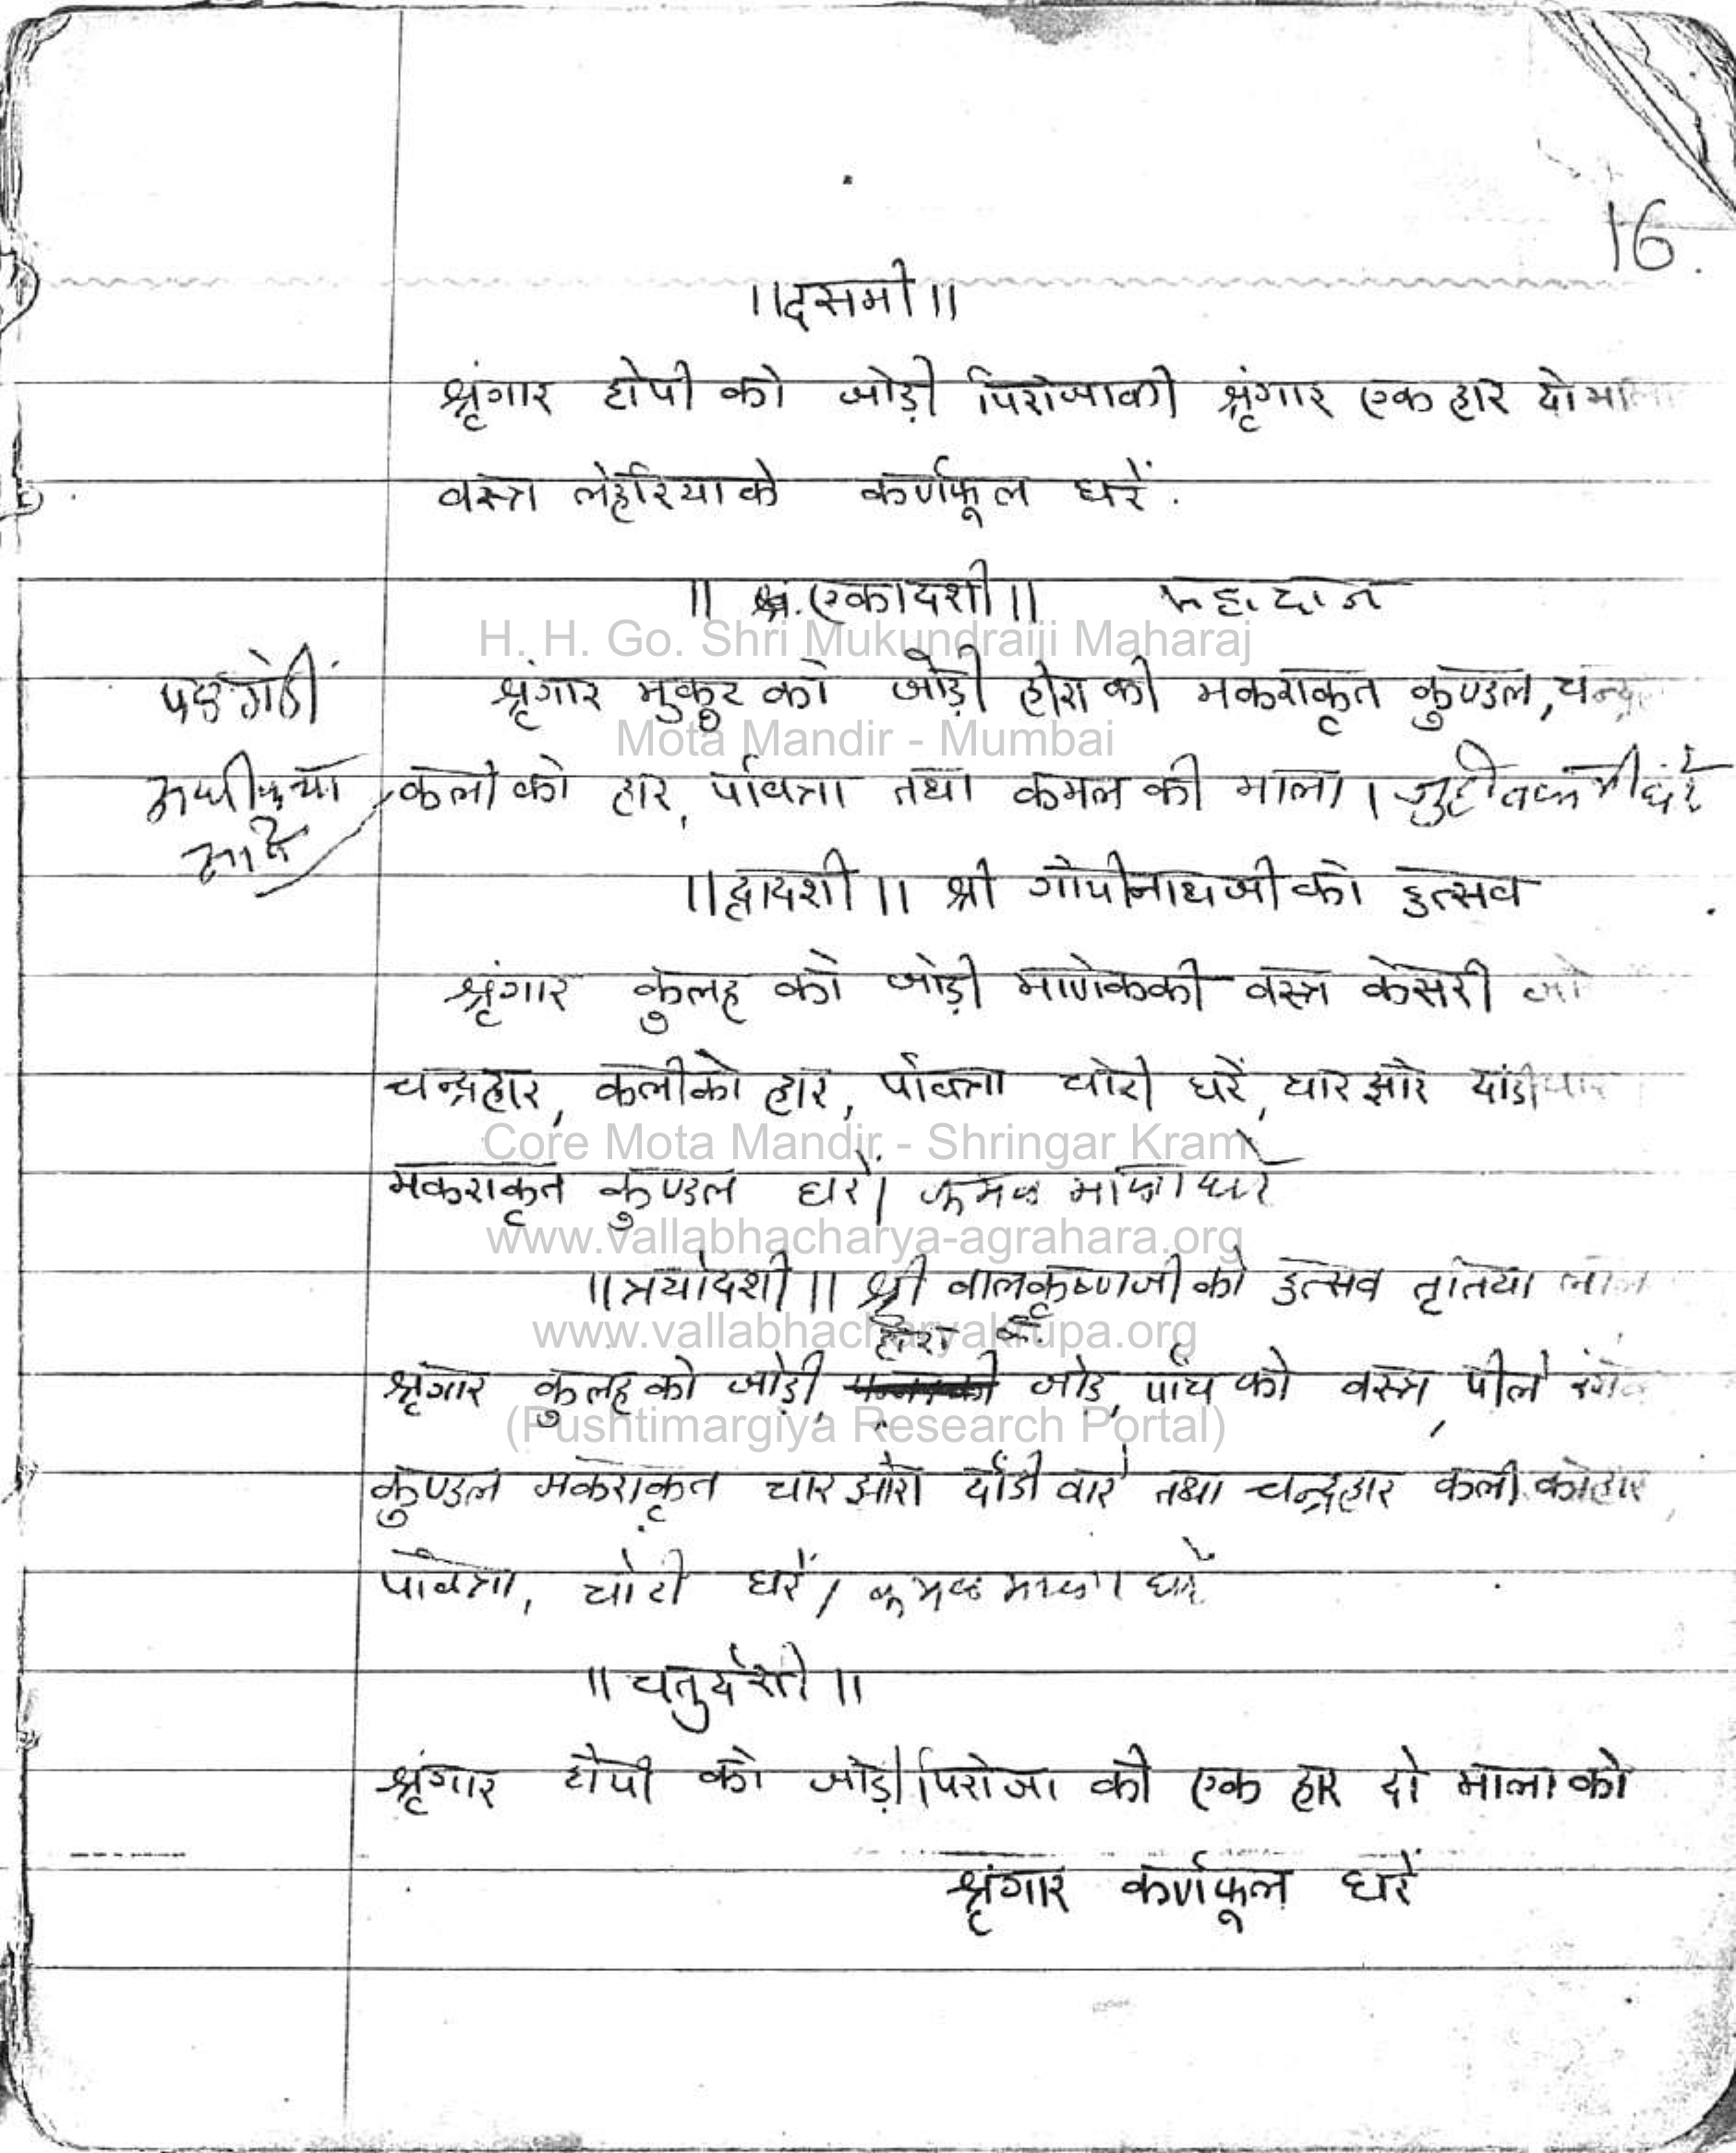 16.
।।दसमी।।
श्रृंगार टोपी को जोड़ी पिरोजाकी श्रृंगार एक हार दो माला
वस्त्र लेहरिया के कर्णफूल धरें.
।। एकादशी।। महादान
श्रृंगार मुकुट को जोड़ी हीरा की मकराकृत कुण्डल, चन्द्र
कली को हार, पवित्रा तथा कमल की माला।
।।द्वादशी।। श्री गोपीनाथजी को उत्सव
श्रृंगार कुलह को जोड़ी माणेककी वस्त्र केसरी
चन्द्रहार, कलीको हार, पवित्रा चोटी धरें, चार झोरे दांडी
मकराकृत कुण्डल धरें। कमल माला धरे
।।त्रयोदशी।। श्री बालकृष्णजी को उत्सव तृतिया लाल
हीरा की
श्रृंगार कुलह को जोड़ी, जोड़, पाँच को वस्त्र, पीले
कुण्डल मकराकृत चार झोरा दाँडी वारे तथा चन्द्रहार कली को हार,
पवित्रा, चोटी धरें। कमल माला धरें
।।चतुर्दशी।।
श्रृंगार टोपी को जोड़ी पिरोजा की एक हार दो माला को
श्रृंगार कर्णफूल धरें
H. H. Go. Shri Mukundraiji Maharaj
Mota Mandir - Mumbai
Core Mota Mandir - Shringar Kram
www.vallabhacharya-agrahara.org
www.vallabhacharyakrupa.org
(Pushtimargiya Research Portal)